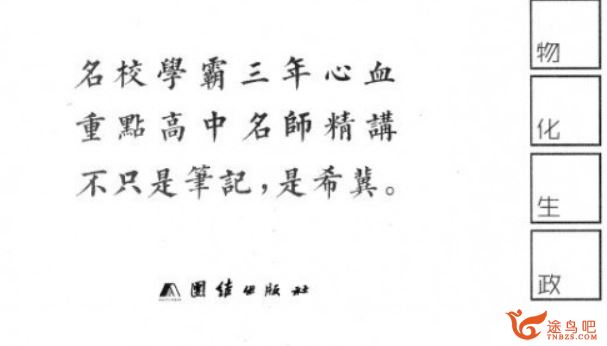 名校學霸三年心血
重點高中名師精講
不只是筆記，是希冀。
團結出版社
物
化
生
政
途鸟吧
TNBZS.COM